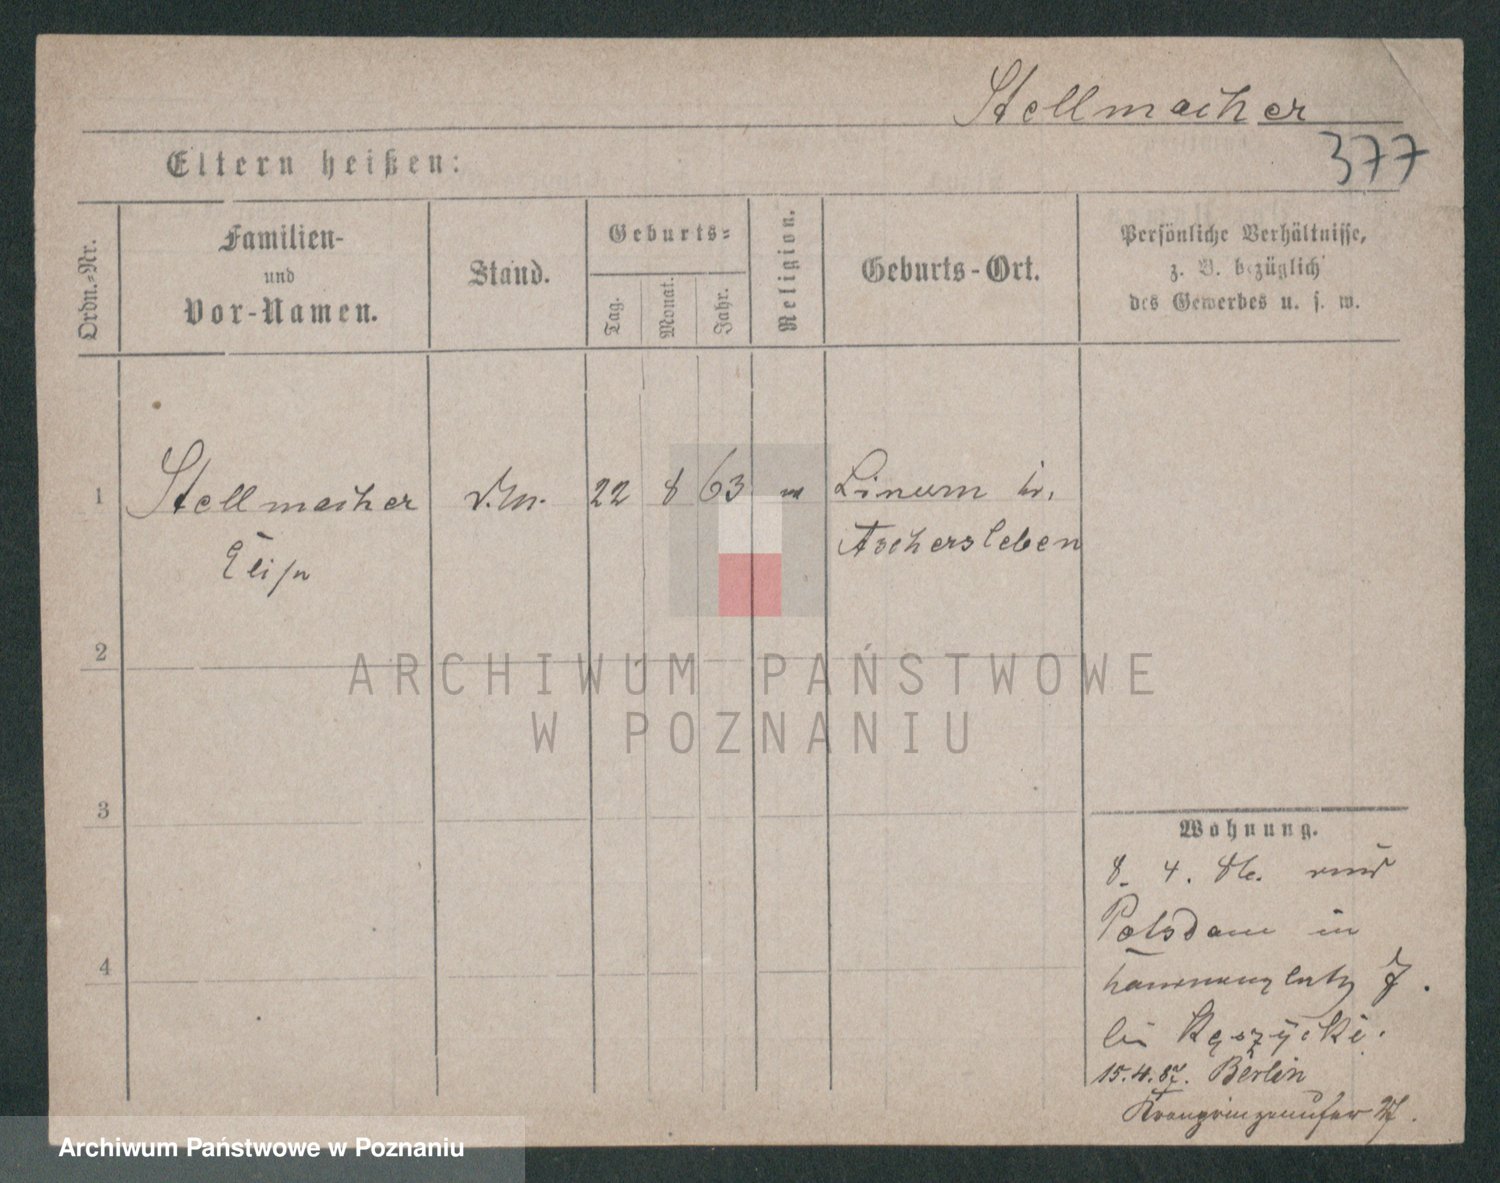 Stellmacher
377
Eltern heißen:
Ordn.-Nr.
Familien-
und
Vor-Namen.
Stand.
Geburts-
Tag.
Monat.
Jahr.
Religion.
Geburts-Ort.
Persönliche Verhältnisse,
z. B. bezüglich
des Gewerbes u. s. w.
1
Stellmacher
22 8 63
Linum
Aschersleben
2
ARCHIWUM PAŃSTWOWE
W POZNANIU
3
4
Wohnung.
8. 4. 86.
Potsdam in
7.
bei
15.4.87. Berlin
Kronprinzenufer
Archiwum Państwowe w Poznaniu